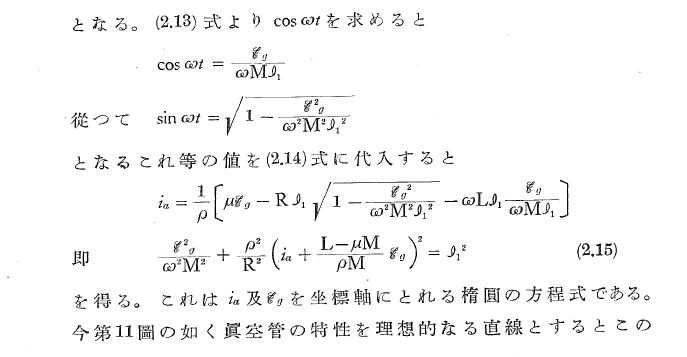 となる。(2.13)式より cos ωt を求めると
cos ωt = ℰg / ωMℐ₁
從つて sin ωt = √(1 − ℰ²g / ω²M²ℐ₁²)
となるこれ等の値を(2.14)式に代入すると
iₐ = 1/ρ [μℰg − Rℐ₁ √(1 − ℰg² / ω²M²ℐ₁²) − ωLℐ₁ ℰg / ωMℐ₁]
即 ℰ²g / ω²M² + ρ²/R² (iₐ + (L−μM)/ρM ℰg)² = ℐ₁² (2.15)
を得る。これは iₐ 及 ℰg を坐標軸にとれる楕圓の方程式である。
今第11圖の如く眞空管の特性を理想的なる直線とするとこの